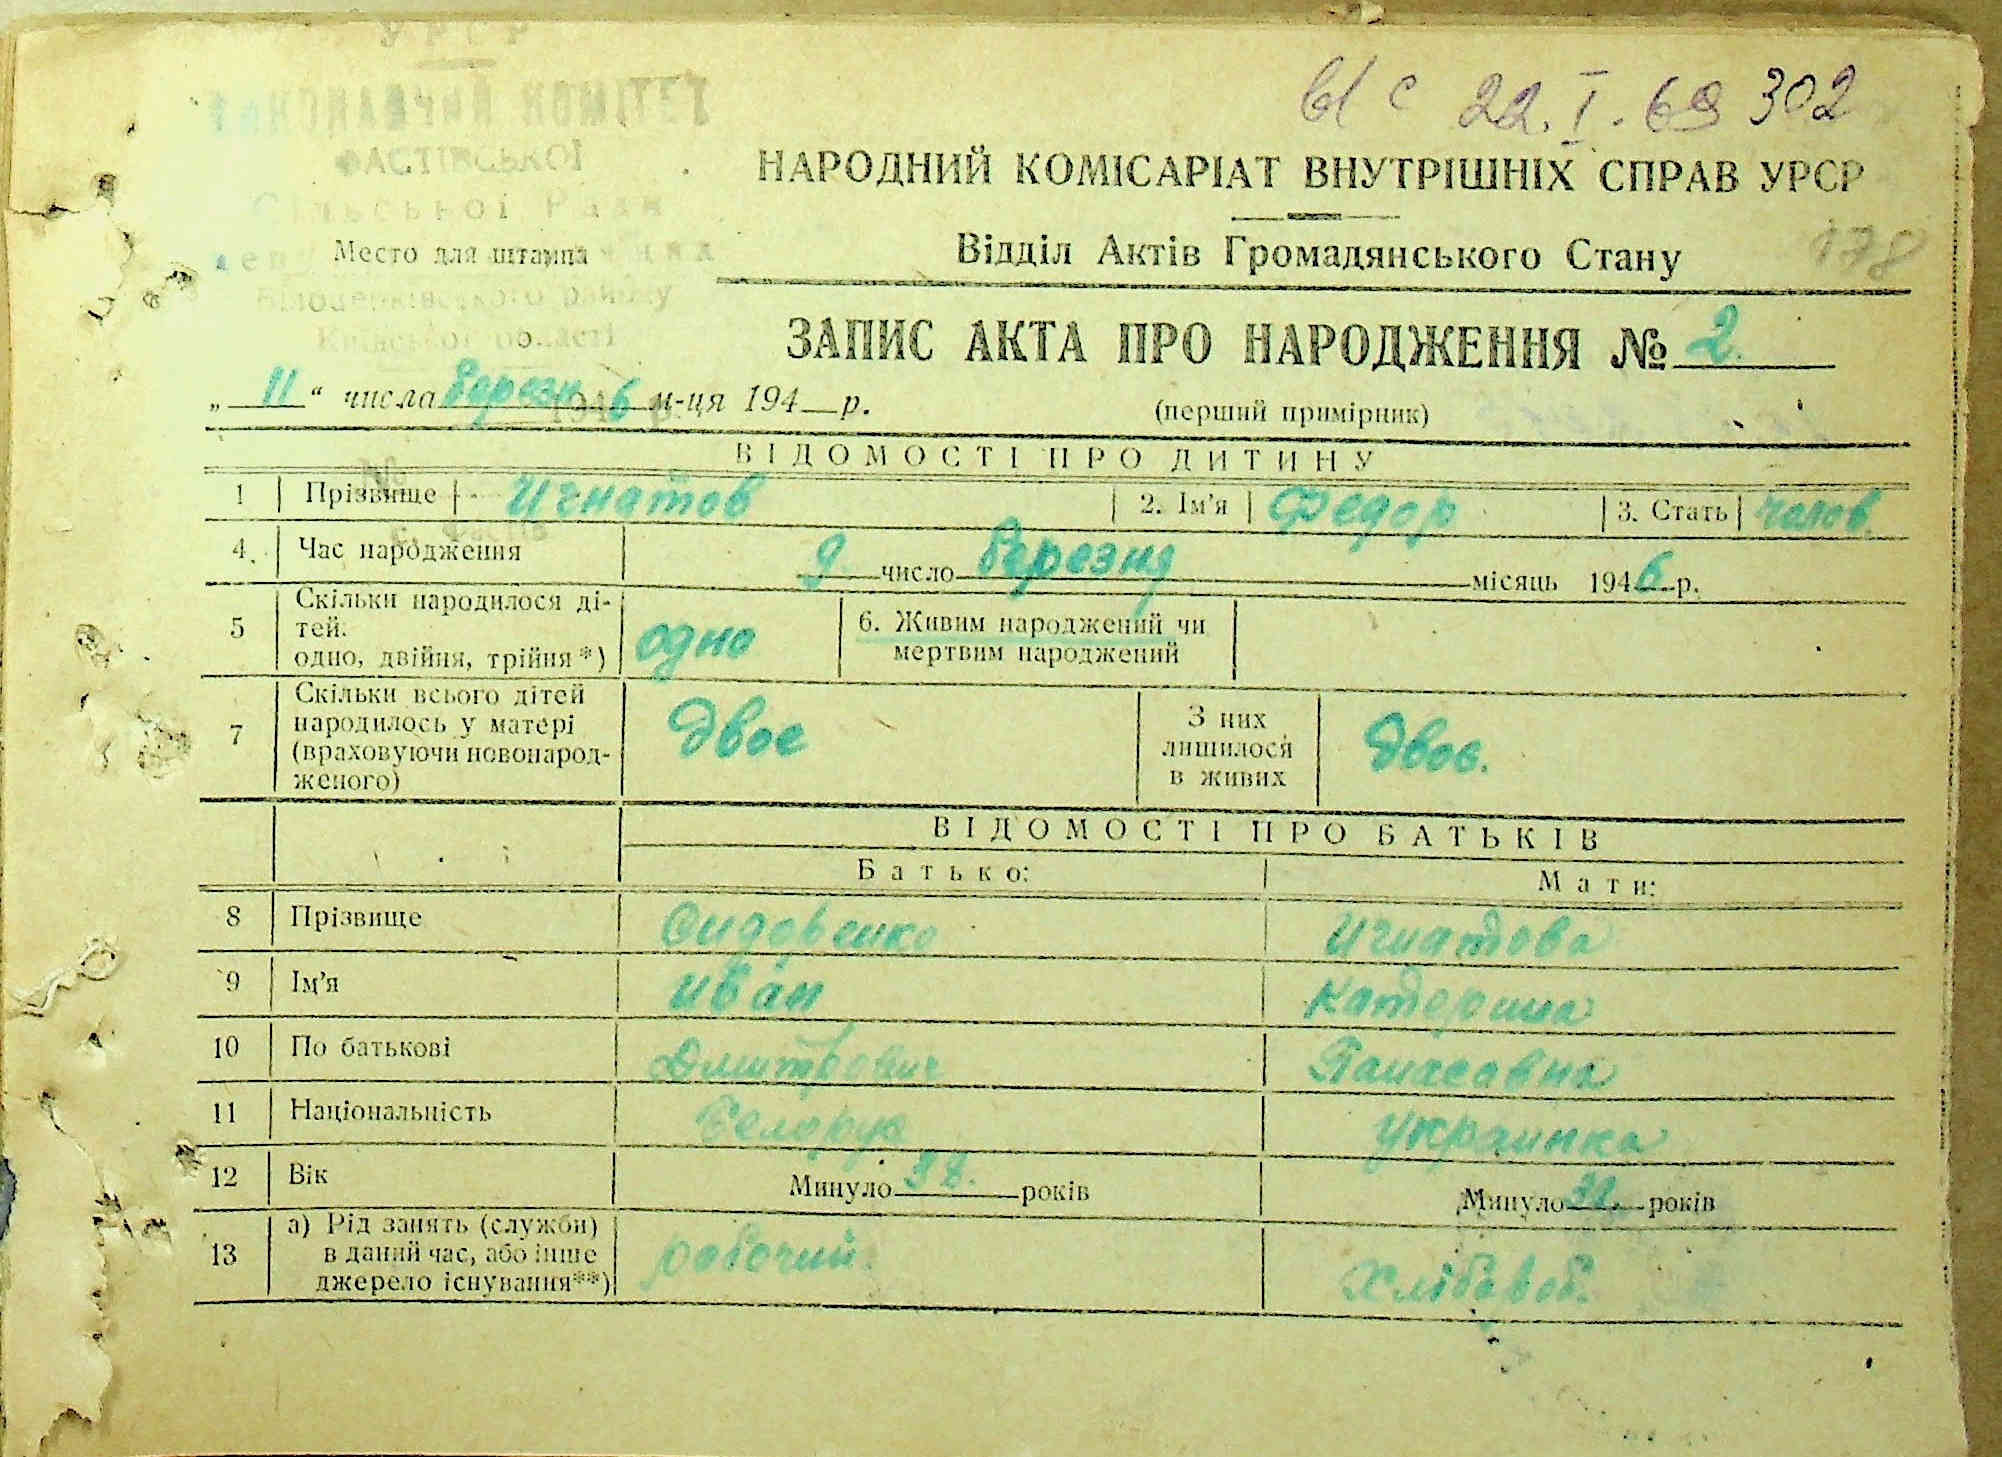 УРСР
ВИКОНАВЧИЙ КОМІТЕТ
ФАСТІВСЬКОЇ
Сільської Ради
Место для штампа
Білоцерківського району
Київської області
22. I. 69 302
НАРОДНИЙ КОМІСАРІАТ ВНУТРІШНІХ СПРАВ УРСР
Відділ Актів Громадянського Стану
178
ЗАПИС АКТА ПРО НАРОДЖЕННЯ № 2.
„ 11 “ числа березн 1946 м-ця 194 р.
(перший примірник)
ВІДОМОСТІ ПРО ДИТИНУ
1 Прізвище Игнатов 2. Ім'я Федор 3. Стать чолов.
4. Час народження 9 число березня місяць 1946 р.
5 Скільки народилося ді-
тей.
одно, двійня, трійня*) одно
6. Живим народжений чи
мертвим народжений
7 Скільки всього дітей
народилось у матері
(враховуючи новонарод-
женого) двое
З них
лишилося
в живих двое.
ВІДОМОСТІ ПРО БАТЬКІВ
Батько: Мати:
8 Прізвище Сидоренко Игнатова
9 Ім'я Иван Катерина
10 По батькові Дмитрович Панасовна
11 Національність Белорус Украинка
12 Вік Минуло 38. років Минуло 32. років
13 а) Рід занять (служби)
в даний час, або інше
джерело існування**) рабочий. Хлібороб.